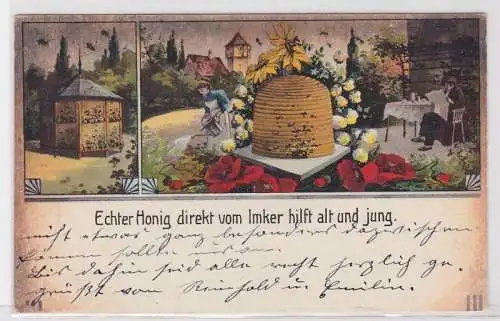 Echter Honig direkt vom Imker hilft alt und jung.
nicht etwas ganz besonders dazwischen
kommen sollte
Bis dahin seid alle recht herzlich ge-
grüßt von Reinhold u. Emilin.